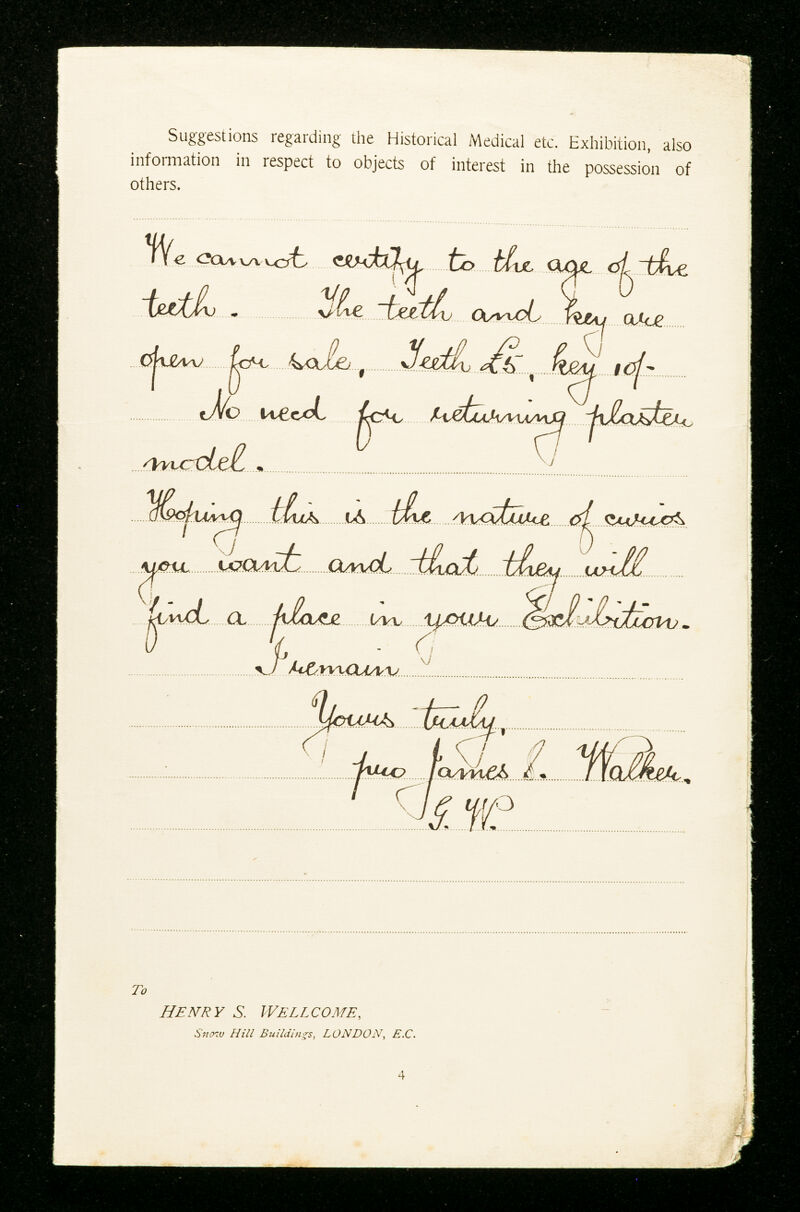 Suggestions regarding the Historical Medical etc. Exhibition, also
information in respect to objects of interest in the possession of
others.
We cannot certify to the age of the
teeth. The teeth and key are
open for sale, Teeth £5, key 10/-
No need for returning plaster
model.
Hoping this is the nature of curios
you want and that they will
find a place in your Exhibition.
I remain
Yours truly,
pro James S. Walker.
G. W.
To
HENRY S. WELLCOME,
Snow Hill Buildings, LONDON, E.C.
4